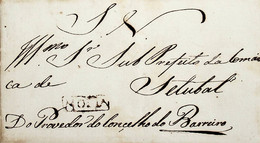 S. N.
Illmo Sr. Sub Prefeito da Comar
ca de
Setubal
Do Provedor do Concelho do Barreiro